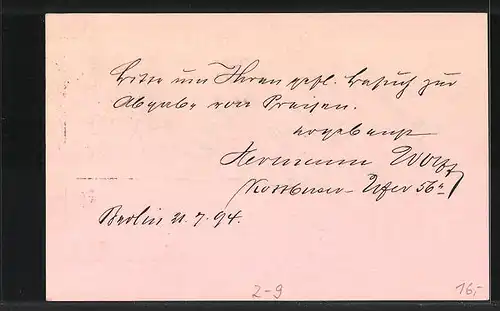 Bitte um Ihren gefl. Besuch zur
Abgabe von Preisen.
ergebenst
Hermann Wolff
Kottbuser-Ufer 56a
Berlin 21.7.94.
2-9
16,-